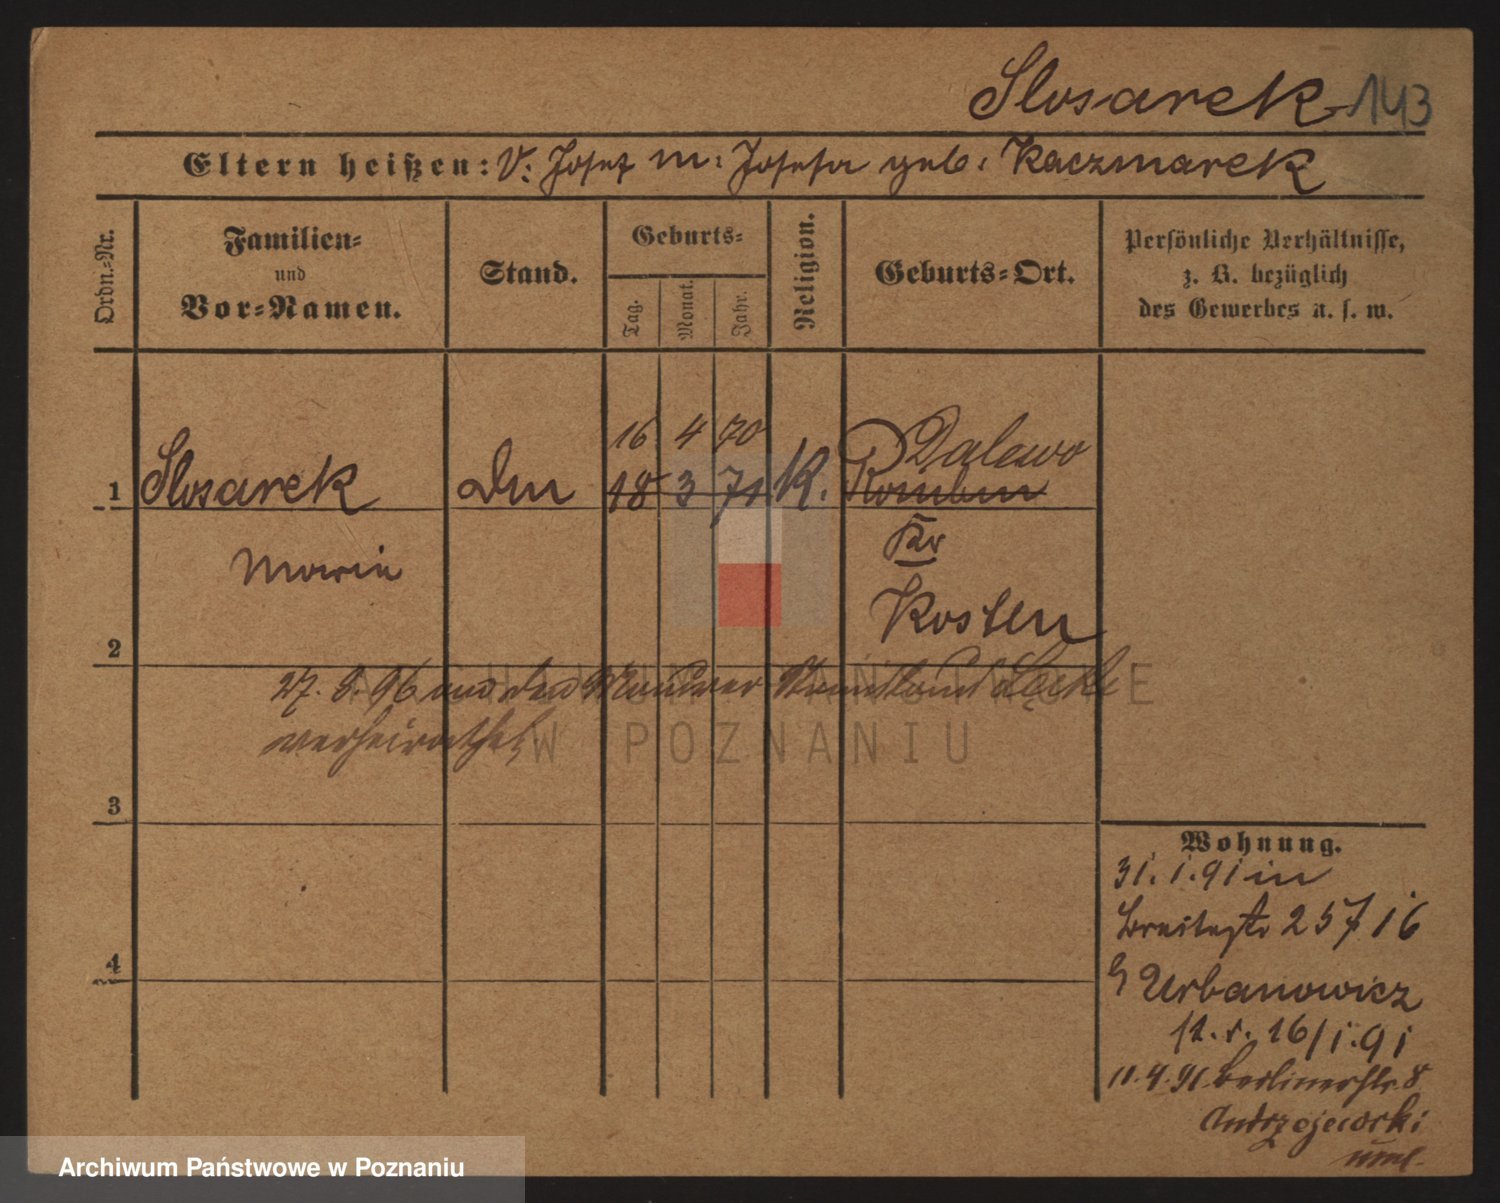 Slosarek 143
Eltern heißen: V: Josef M: Josefa geb: Kaczmarek
Ordn.-Nr.
Familien-
und
Vor-Namen.
Stand.
Geburts-
Tag.
Monat.
Jahr.
Religion.
Geburts-Ort.
Persönliche Verhältnisse,
z. B. bezüglich
des Gewerbes u. s. w.
16 4 70 Dalewo
1 Slosarek 18 3 71 K.
Marie Kr
Kosten
2
27. 8. 96 den Maurer
verheirathet
ARCHIWUM PAŃSTWOWE
W POZNANIU
3
Wohnung.
31. 1. 91 in
Breitestr 25 716
4
Urbanowicz
16/1. 91
11. 4. 91 Berlinerstr. 8
Andrzejewski
Archiwum Państwowe w Poznaniu